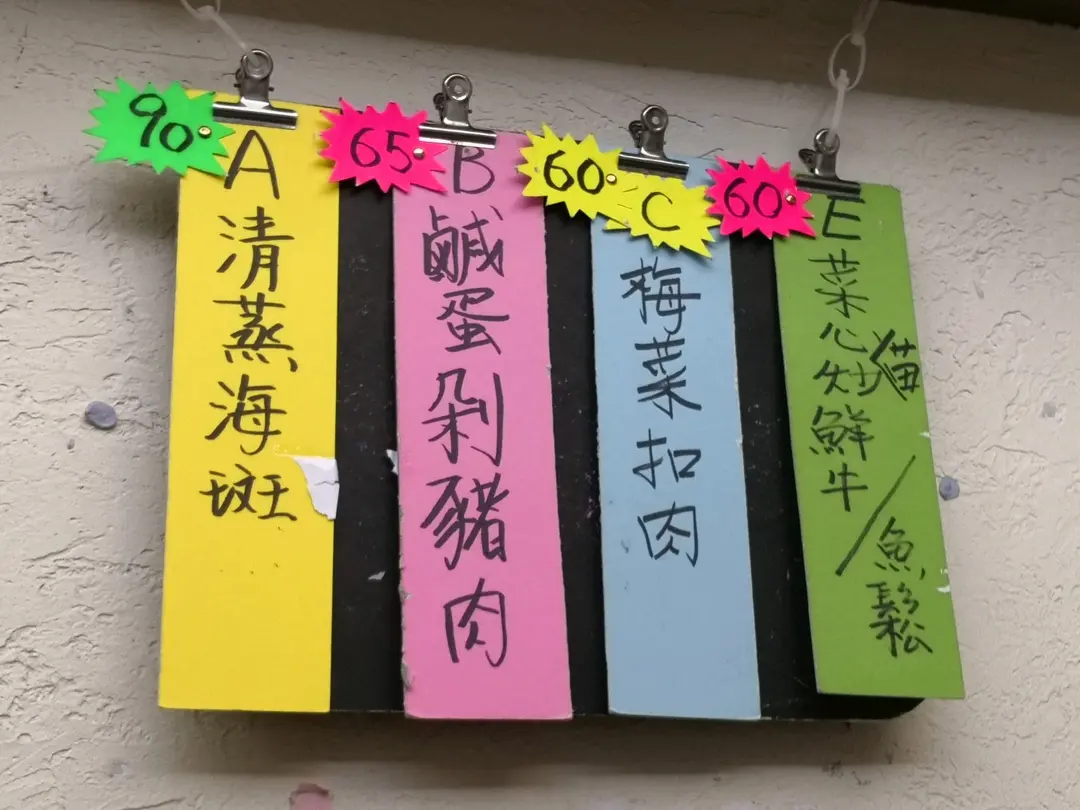 90
A
清蒸海斑
65
B
鹹蛋剁豬肉
60
C
梅菜扣肉
60
E
菜心炒鮮牛/魚鬆